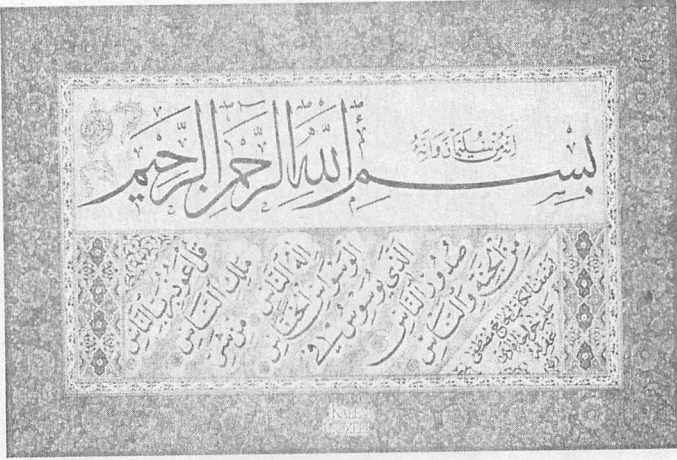 إنه من سليمان وإنه
بسم الله الرحمن الرحيم
قل أعوذ برب الناس
ملك الناس
إله الناس
من شر
الوسواس الخناس
الذي يوسوس في
صدور الناس
من الجنة والناس